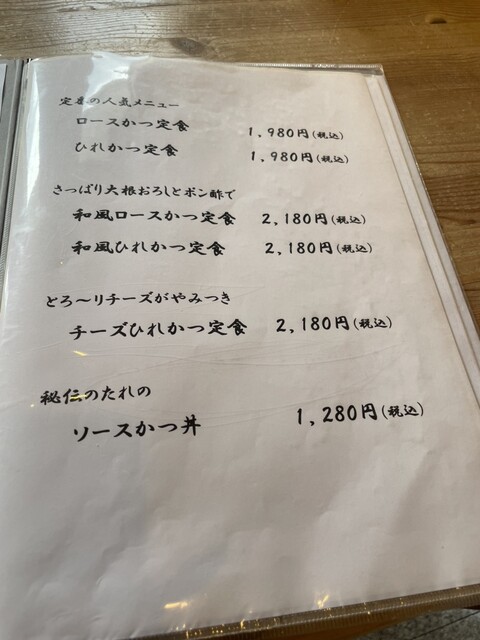 定番の人気メニュー
ロースかつ定食 1,980円(税込)
ひれかつ定食 1,980円(税込)
さっぱり大根おろしとポン酢で
和風ロースかつ定食 2,180円(税込)
和風ひれかつ定食 2,180円(税込)
とろ〜りチーズがやみつき
チーズひれかつ定食 2,180円(税込)
秘伝のたれの
ソースかつ丼 1,280円(税込)